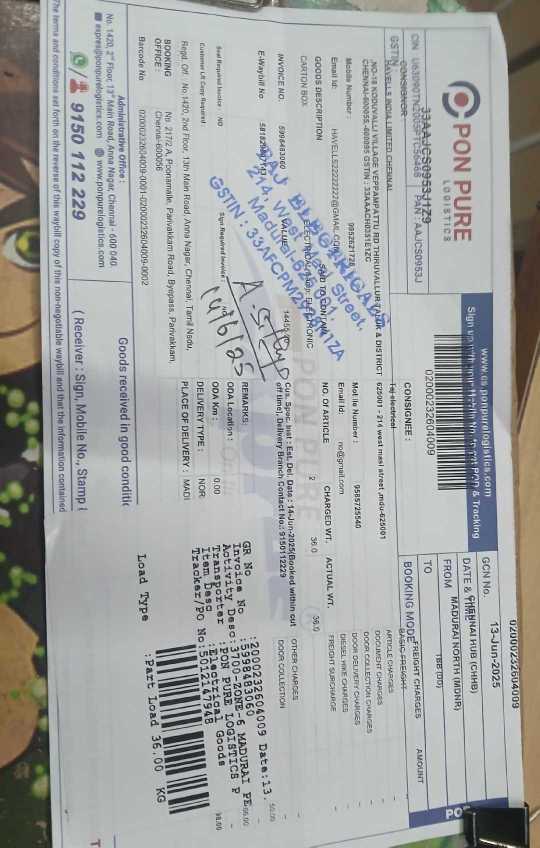 PON PURE
LOGISTICS
www.cs.ponpurelogistics.com
02000232604009
GCN No.
02000232604009
13-Jun-2025
DATE & TIME
CHENNAI HUB (CHHB)
FROM
MADURAI NORTH (MDNR)
TO
TBB (DD)
BOOKING MODE
CIN
33AAJCS0953J1Z9
PAN : AAJCS0953J
GSTIN
CONSIGNOR :
HAVELLS INDIA LIMITED CHENNAI
NO-18 KODUVALLI VILLAGE VEPPAMPATTU RD THIRUVALLUR TALUK & DISTRICT
CHENNAI-600055
Mobile Number :
9952621728
Email Id:
CONSIGNEE :
Taj electrical
625001 - 214 west masi street ,mdu-625001
Mobile Number :
9585725540
Email Id:
no@gmail.com
FREIGHT CHARGES
AMOUNT
BASIC FREIGHT
ARTICLE CHARGES
DOCUMENT CHARGES
DOOR COLLECTION CHARGES
DOOR DELIVERY CHARGES
DIESEL HIKE CHARGES
FREIGHT SURCHARGE
OTHER CHARGES
DOOR COLLECTION
50.00
GOODS DESCRIPTION
SAID TO CONTAIN
NO. OF ARTICLE
CHARGED WT.
ACTUAL WT.
CARTON BOX
2
36.0
36.0
INVOICE NO.
5998483060
VALUE
E-Waybill No
Cus. Spec. Inst : Est. Del. Date : 14-Jun-2025(Booked within cut
off time), Delivery Branch Contact No.: 9150112229
Seal Required Invoice : NO
Sign Required Invoice :
Customer LR Copy Required
REMARKS:
ODA Location :
ODA Km :
0.00
DELIVERY TYPE :
NOR
PLACE OF DELIVERY :
MADI
Regd. Off. : No. 1420, 2nd Floor, 13th Main Road, Anna Nagar, Chennai, Tamil Nadu,
BOOKING
OFFICE :
No. 217/2 A, Poonamalle, Parivakkam Road, Byepass, Parivakkam,
Chennai-600056
Barcode No
02000232604009-0001-02000232604009-0002
214, West Masi Street,
Madurai-625 001
A. S.
14/6/25
GR No
:2000232604009 Date:13.
Invoice No
:5998483060
Activity Desc:3707 ZONE-6 MADURAI PE
Transporter
:PON PURE LOGISTICS P
Item Desc
:Electrical Goods
Tracker/PO No:5012147948
Load Type
:Part Load 36.00 KG
Administrative Office :
No. 1420, 2nd Floor, 13th Main Road, Anna Nagar, Chennai - 600 040.
www.ponpurelogistics.com
9150 112 229
Goods received in good conditi
( Receiver : Sign, Mobile No., Stamp &
The terms and conditions set forth on the reverse of this waybill copy of this non-negotiable waybill and that the information contained